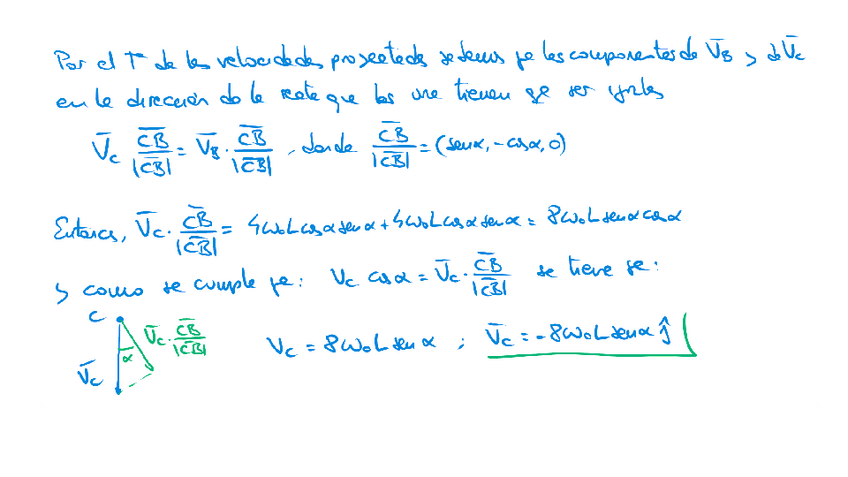 Por el Tª de las velocidades proyectadas sabemos que las componentes de V̄_B y de V̄_C
en la dirección de la recta que los une tienen que ser iguales
V̄_C · C̄B̄/|C̄B̄| = V̄_B · C̄B̄/|C̄B̄| , donde C̄B̄/|C̄B̄| = (senα, -cosα, 0)
Entonces, V̄_C · C̄B̄/|C̄B̄| = 4ω₀L cosα senα + 4ω₀L cosα senα = 8ω₀L senα cosα
y como se cumple que: V_C cosα = V̄_C · C̄B̄/|C̄B̄| se tiene que:
C
V̄_C · C̄B̄/|C̄B̄|
α
V̄_C
V_C = 8ω₀L senα ; V̄_C = -8ω₀L senα ĵ